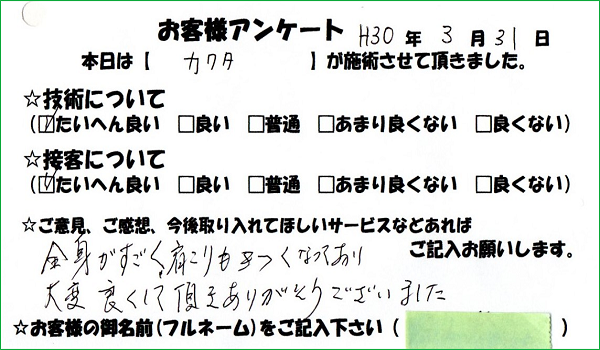 お客様アンケート H30年3月31日
本日は【 カワタ 】が施術させて頂きました。
☆技術について
(☑たいへん良い □良い □普通 □あまり良くない □良くない)
☆接客について
(☑たいへん良い □良い □普通 □あまり良くない □良くない)
☆ご意見、ご感想、今後取り入れてほしいサービスなどあれば
ご記入お願いします。
全身がすごく、肩こりもきつくなっており
大変良くして頂きありがとうございました
☆お客様の御名前(フルネーム)をご記入下さい(